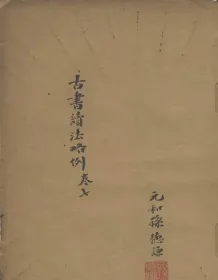 古書讀法略例卷七
元和孫德謙